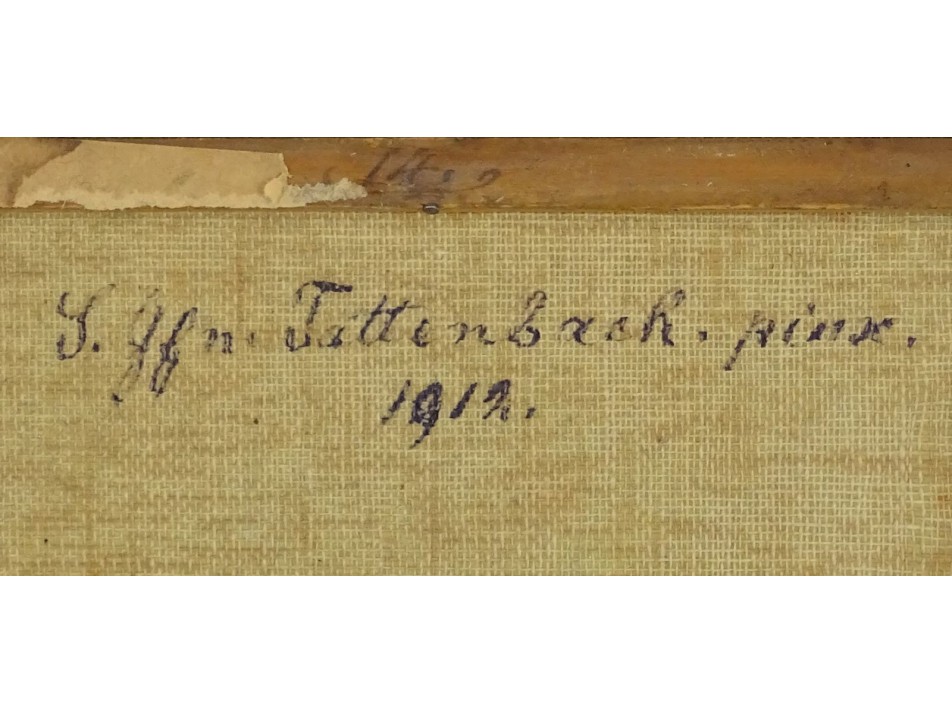 S. Gfn. Tattenbach. pinx.
1912.